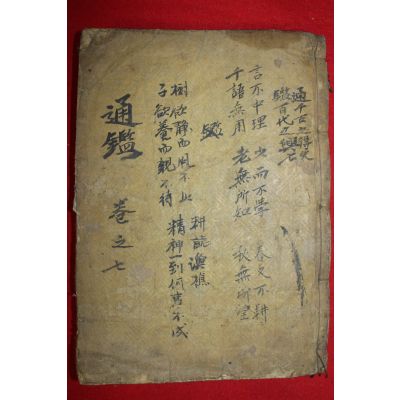 通千古之得失
鑑百代之興亡
言不中理 少而不學 春若不耕
千語無用 老無所知 秋無所望
鑑
樹欲静而風不止 耕前漁樵
子欲養而親不待 精神一到何事不成
通鑑 卷之七